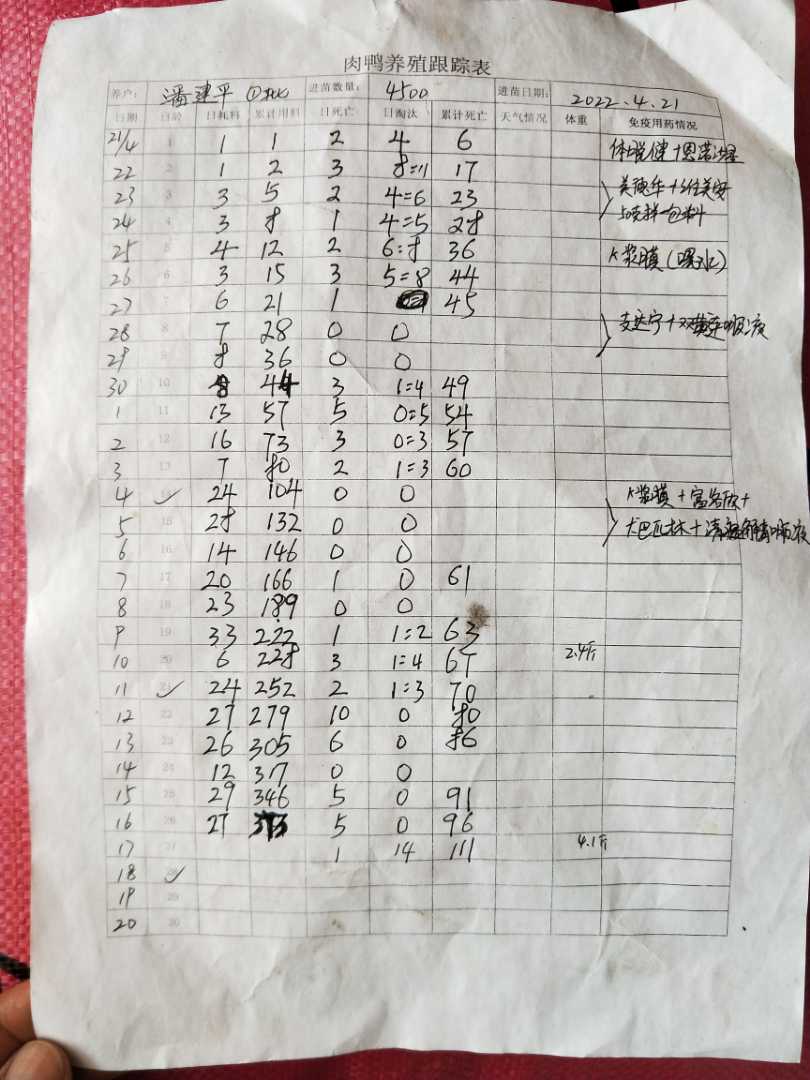 肉鸭养殖跟踪表
养户: 潘建平 ①批 进苗数量: 4500 进苗日期: 2022.4.21
日期 日龄 日耗料 累计用料 日死亡 日淘汰 累计死亡 天气情况 体重 免疫用药情况
21/4 1 1 1 2 4 6
22 2 1 2 3 8=11 17
23 3 3 5 2 4=6 23
24 4 3 8 1 4=5 28
25 5 4 12 2 6=8 36 K浆膜
26 6 3 15 3 5=8 44
27 7 6 21 1 45
28 8 7 28 0 0
29 9 8 36 0 0
30 10 8 44 3 1=4 49
1 11 13 57 5 0=5 54
2 12 16 73 3 0=3 57
3 13 7 80 2 1=3 60
4 ✓ 24 104 0 0 K浆膜+
5 15 28 132 0 0
6 16 14 146 0 0
7 17 20 166 1 0 61
8 18 23 189 0 0
9 19 33 222 1 1=2 63
10 20 6 228 3 1=4 67 2.4斤
11 21 ✓ 24 252 2 1=3 70
12 22 27 279 10 0 80
13 23 26 305 6 0 86
14 24 12 317 0 0
15 25 29 346 5 0 91
16 26 27 373 5 0 96
17 27 1 14 111 4.1斤
18 28 ✓
19 29
20 30